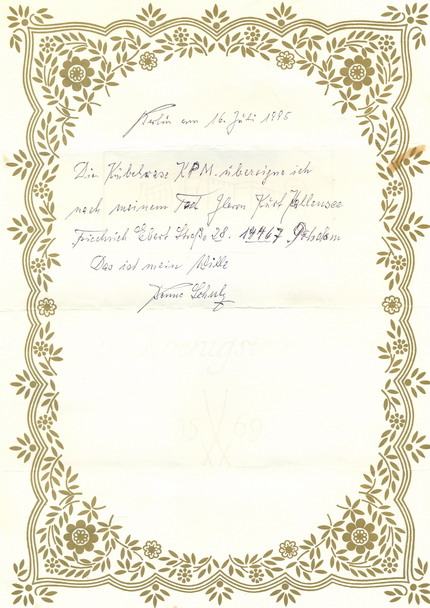 Berlin am 16. Juli 1995
Die Kübelvase KPM. übereigne ich
nach meinem Tod Herrn Kurt Kallensee
Friedrich Ebert Straße 28. 14467 Potsdam
Das ist mein Wille
Schulz
Koenigst
1569